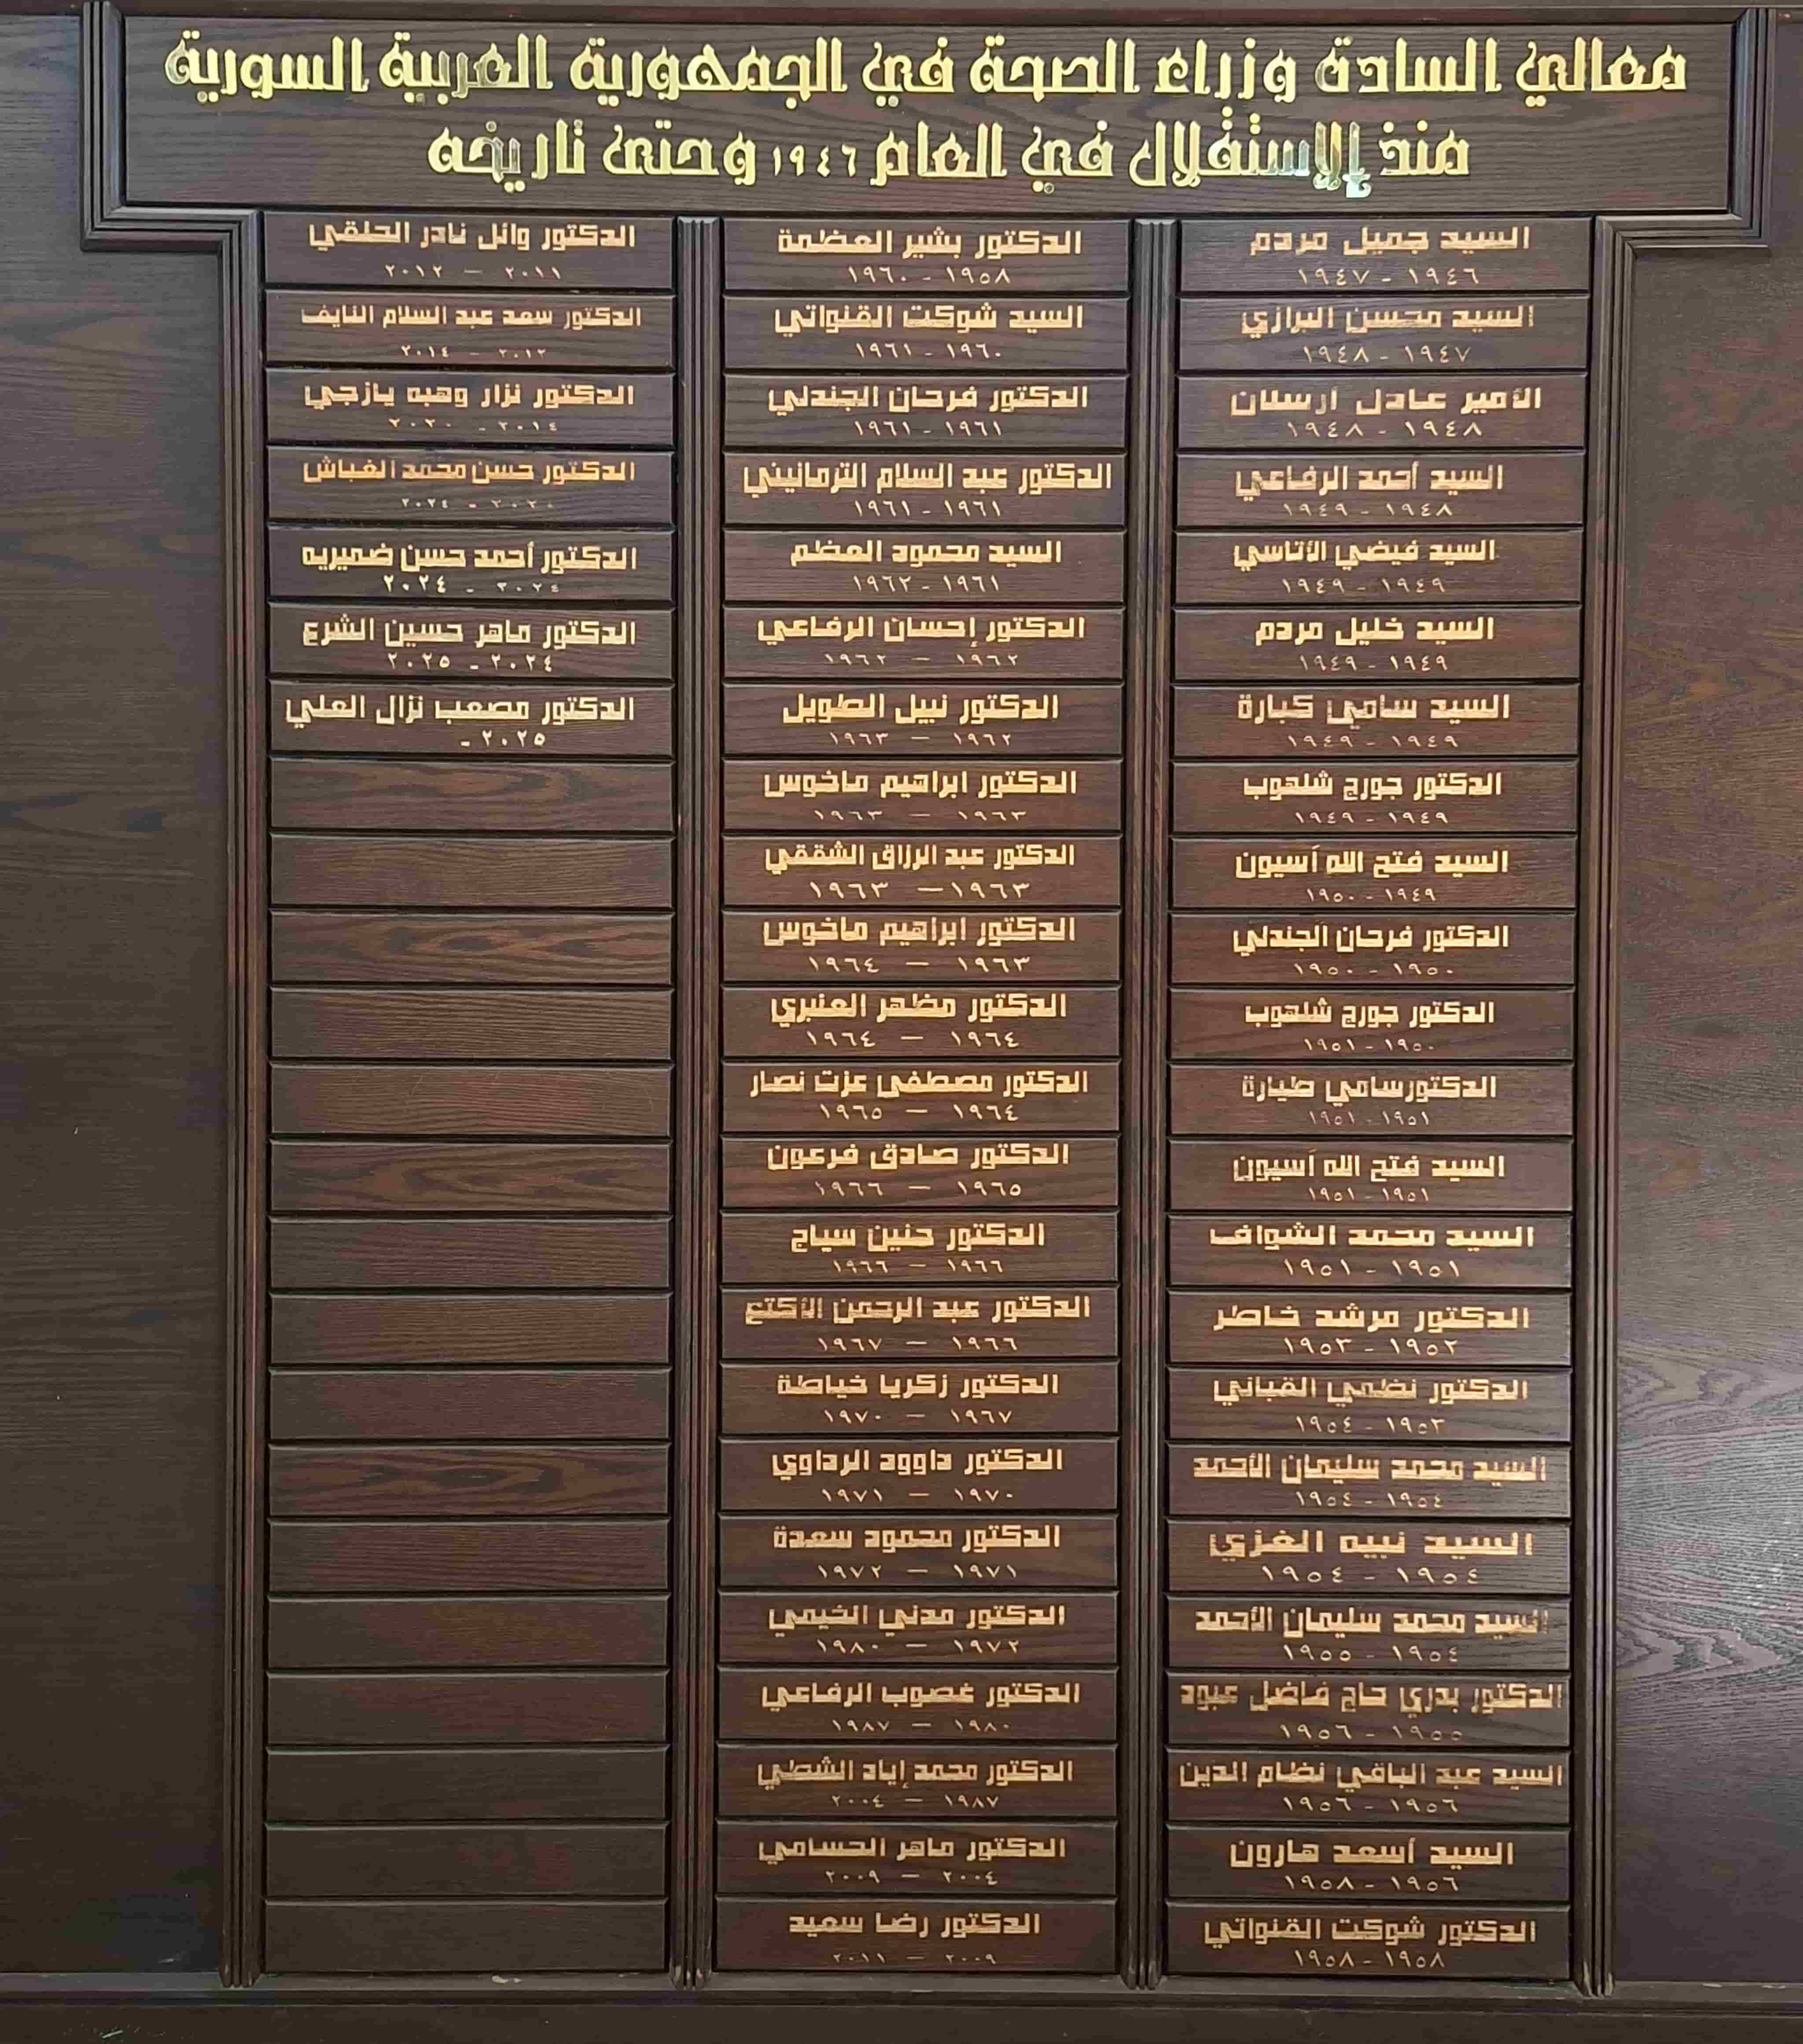 معالي السادة وزراء الصحة في الجمهورية العربية السورية
منذ الإستقلال في العام ١٩٤٦ وحتى تاريخه
السيد جميل مردم
١٩٤٦ - ١٩٤٧
السيد محسن البرازي
١٩٤٧ - ١٩٤٨
الأمير عادل أرسلان
١٩٤٨ - ١٩٤٨
السيد أحمد الرفاعي
١٩٤٨ - ١٩٤٩
السيد فيضي الأتاسي
١٩٤٩ - ١٩٤٩
السيد خليل مردم
١٩٤٩ - ١٩٤٩
السيد سامي كبارة
١٩٤٩ - ١٩٤٩
الدكتور جورج شلهوب
١٩٤٩ - ١٩٤٩
السيد فتح الله آسيون
١٩٤٩ - ١٩٥٠
الدكتور فرحان الجندلي
١٩٥٠ - ١٩٥٠
الدكتور جورج شلهوب
١٩٥٠ - ١٩٥١
الدكتورسامي طيارة
١٩٥١ - ١٩٥١
السيد فتح الله آسيون
١٩٥١ - ١٩٥١
السيد محمد الشواف
١٩٥١ - ١٩٥١
الدكتور مرشد خاطر
١٩٥٢ - ١٩٥٣
الدكتور نظمي القباني
١٩٥٣ - ١٩٥٤
السيد محمد سليمان الأحمد
١٩٥٤ - ١٩٥٤
السيد نبيه الغزي
١٩٥٤ - ١٩٥٤
السيد محمد سليمان الأحمد
١٩٥٤ - ١٩٥٥
الدكتور بدري حاج فاضل عبود
١٩٥٥ - ١٩٥٦
السيد عبد الباقي نظام الدين
١٩٥٦ - ١٩٥٦
السيد أسعد هارون
١٩٥٦ - ١٩٥٨
الدكتور شوكت القنواتي
١٩٥٨ - ١٩٥٨
الدكتور بشير العظمة
١٩٥٨ - ١٩٦٠
السيد شوكت القنواتي
١٩٦٠ - ١٩٦١
الدكتور فرحان الجندلي
١٩٦١ - ١٩٦١
الدكتور عبد السلام الترمانيني
١٩٦١ - ١٩٦١
السيد محمود العظم
١٩٦١ - ١٩٦٢
الدكتور إحسان الرفاعي
١٩٦٢ — ١٩٦٢
الدكتور نبيل الطويل
١٩٦٢ — ١٩٦٣
الدكتور ابراهيم ماخوس
١٩٦٣ — ١٩٦٣
الدكتور عبد الرزاق الشققي
١٩٦٣ — ١٩٦٣
الدكتور ابراهيم ماخوس
١٩٦٣ — ١٩٦٤
الدكتور مظهر العنبري
١٩٦٤ — ١٩٦٤
الدكتور مصطفى عزت نصار
١٩٦٤ — ١٩٦٥
الدكتور صادق فرعون
١٩٦٥ — ١٩٦٦
الدكتور حنين سياج
١٩٦٦ — ١٩٦٦
الدكتور عبد الرحمن الأكتع
١٩٦٦ — ١٩٦٧
الدكتور زكريا خياطة
١٩٦٧ — ١٩٧٠
الدكتور داوود الرداوي
١٩٧٠ — ١٩٧١
الدكتور محمود سعدة
١٩٧١ — ١٩٧٢
الدكتور مدني الخيمي
١٩٧٢ — ١٩٨٠
الدكتور غصوب الرفاعي
١٩٨٠ — ١٩٨٧
الدكتور محمد إياد الشطي
١٩٨٧ — ٢٠٠٤
الدكتور ماهر الحسامي
٢٠٠٤ — ٢٠٠٩
الدكتور رضا سعيد
٢٠٠٩ — ٢٠١١
الدكتور وائل نادر الحلقي
٢٠١١ — ٢٠١٢
الدكتور سعد عبد السلام النايف
٢٠١٢ — ٢٠١٤
الدكتور نزار وهبه يازجي
٢٠١٤ - ٢٠٢٠
الدكتور حسن محمد الغباش
٢٠٢٠ - ٢٠٢٤
الدكتور أحمد حسن ضميريه
٢٠٢٤ - ٢٠٢٤
الدكتور ماهر حسين الشرع
٢٠٢٤ - ٢٠٢٥
الدكتور مصعب نزال العلي
٢٠٢٥ -